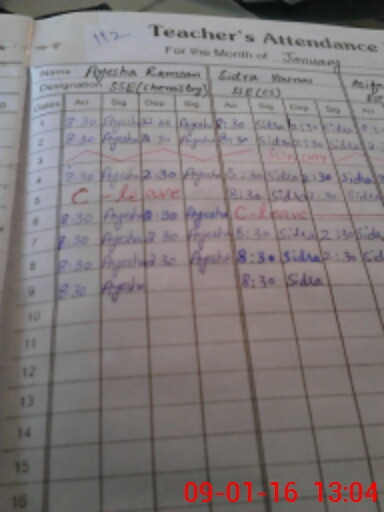 112
Teacher's Attendance
For the Month of January
Name Ayesha Ramzan Sidra
Designation SSE (chemistry) SSE (CS)
Dates Arr Sig Dep Sig Arr Sig Dep Sig Arr
1 8:30 Ayesha 2:30 Ayesha 8:30 Sidra 2:30 Sidra
2 8:30 Ayesha 2:30 Ayesha 8:30 Sidra 2:30 Sidra
3 Sunday
4 8:30 Ayesha 2:30 Ayesha 8:30 Sidra 2:30 Sidra
5 C - leave 8:30 Sidra 2:30 Sidra
6 8:30 Ayesha 2:30 Ayesha C-leave
7 8:30 Ayesha 2:30 Ayesha 8:30 Sidra 2:30 Sid
8 8:30 Ayesha 2:30 Ayesha 8:30 Sidra 2:30 Sid
9 8:30 Ayesha 8:30 Sidra
10
11
12
13
14
15
16
09-01-16 13:04